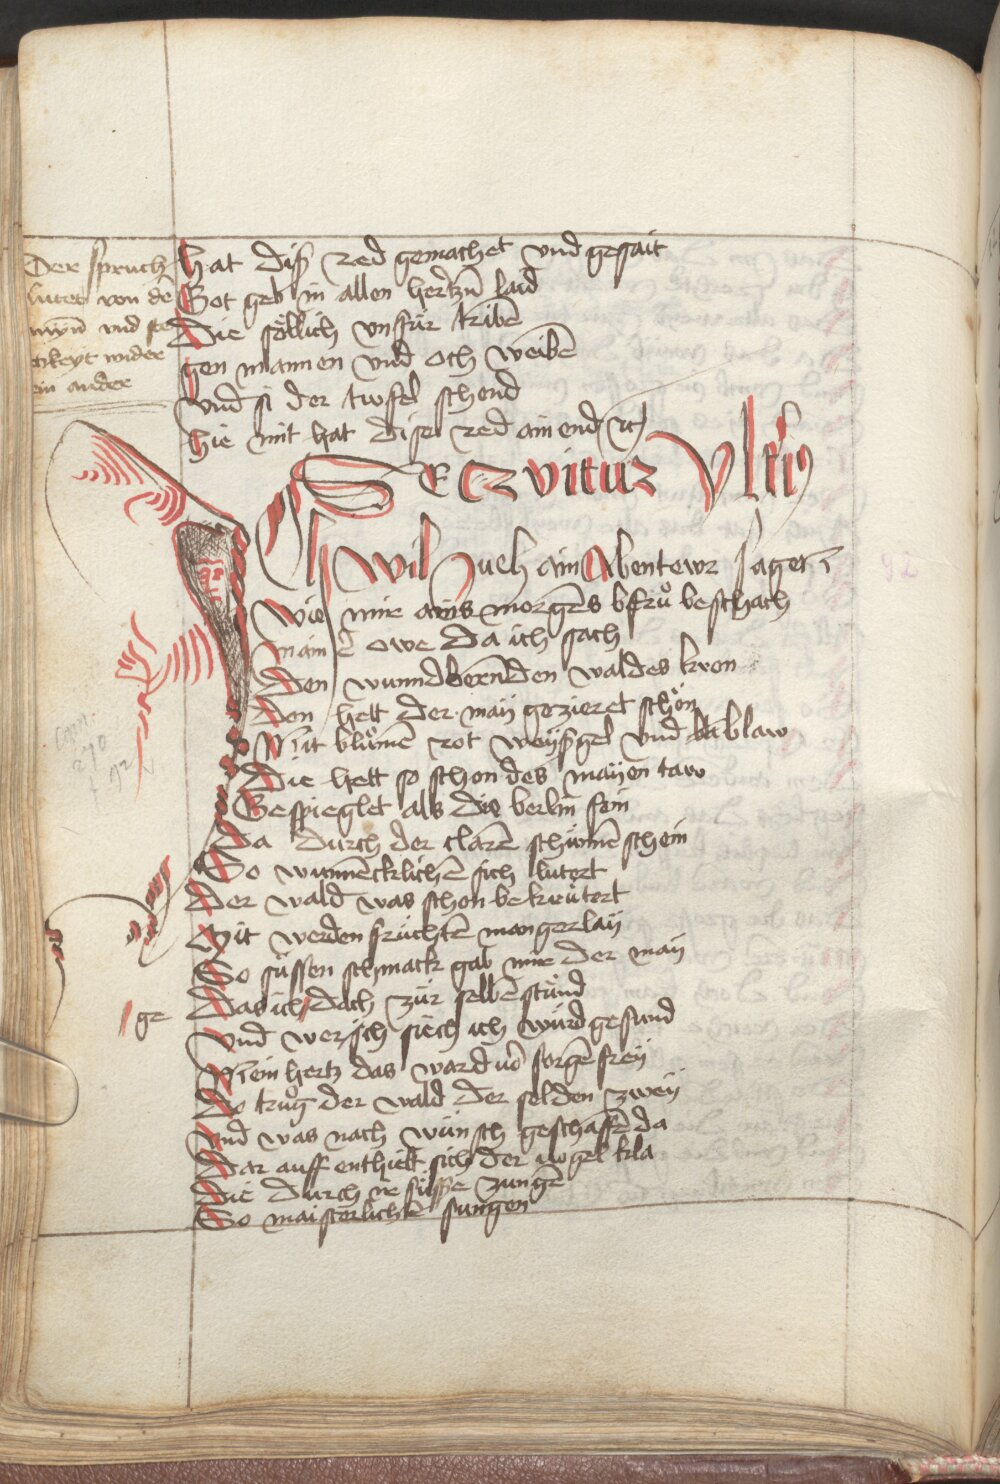 Der spruch
lutet von de
ma͞n vnd ste
tikeyt wider
ein ander
hat diß red gemachet vnd gesait
Got geb in allen hertzn̄ laid
Die söllich vnfür tribē
gen mannen vnd och weibē
vnd si der twfel schend
hie mit hat dise red ain end
Seqvitur vltr͛iꝰ
Ich wil uch ain Abentewr sagen
wie mir ains morgēs frů beschach
owe da ich sach
Den wunnd bernden waldes kron
Den hett der maÿ gezieret schön
Mit blůmē rot weÿß gel vnd blaw
Die hett so schon des maÿen taw
Gespieglet als die berlin fein
Da durch der clarē schein
So wunnēcklichē sich lutert
Der wald was schon bekreutert
Mit werden früchtē mangerlaÿ
So süssen schmack gab mir der maÿ
Das ich dach zür selbē stund
ge
vnd wer ich siech ich würd gesund
Mein hertz das ward vō sorgē freÿ
Do trůg der wald der selden zweÿ
vnd was nach wünsch geschaffē da
Dar auff enthielt sich der vogel kla
Die durch ir süsse zungē
So maisterlichē sungen